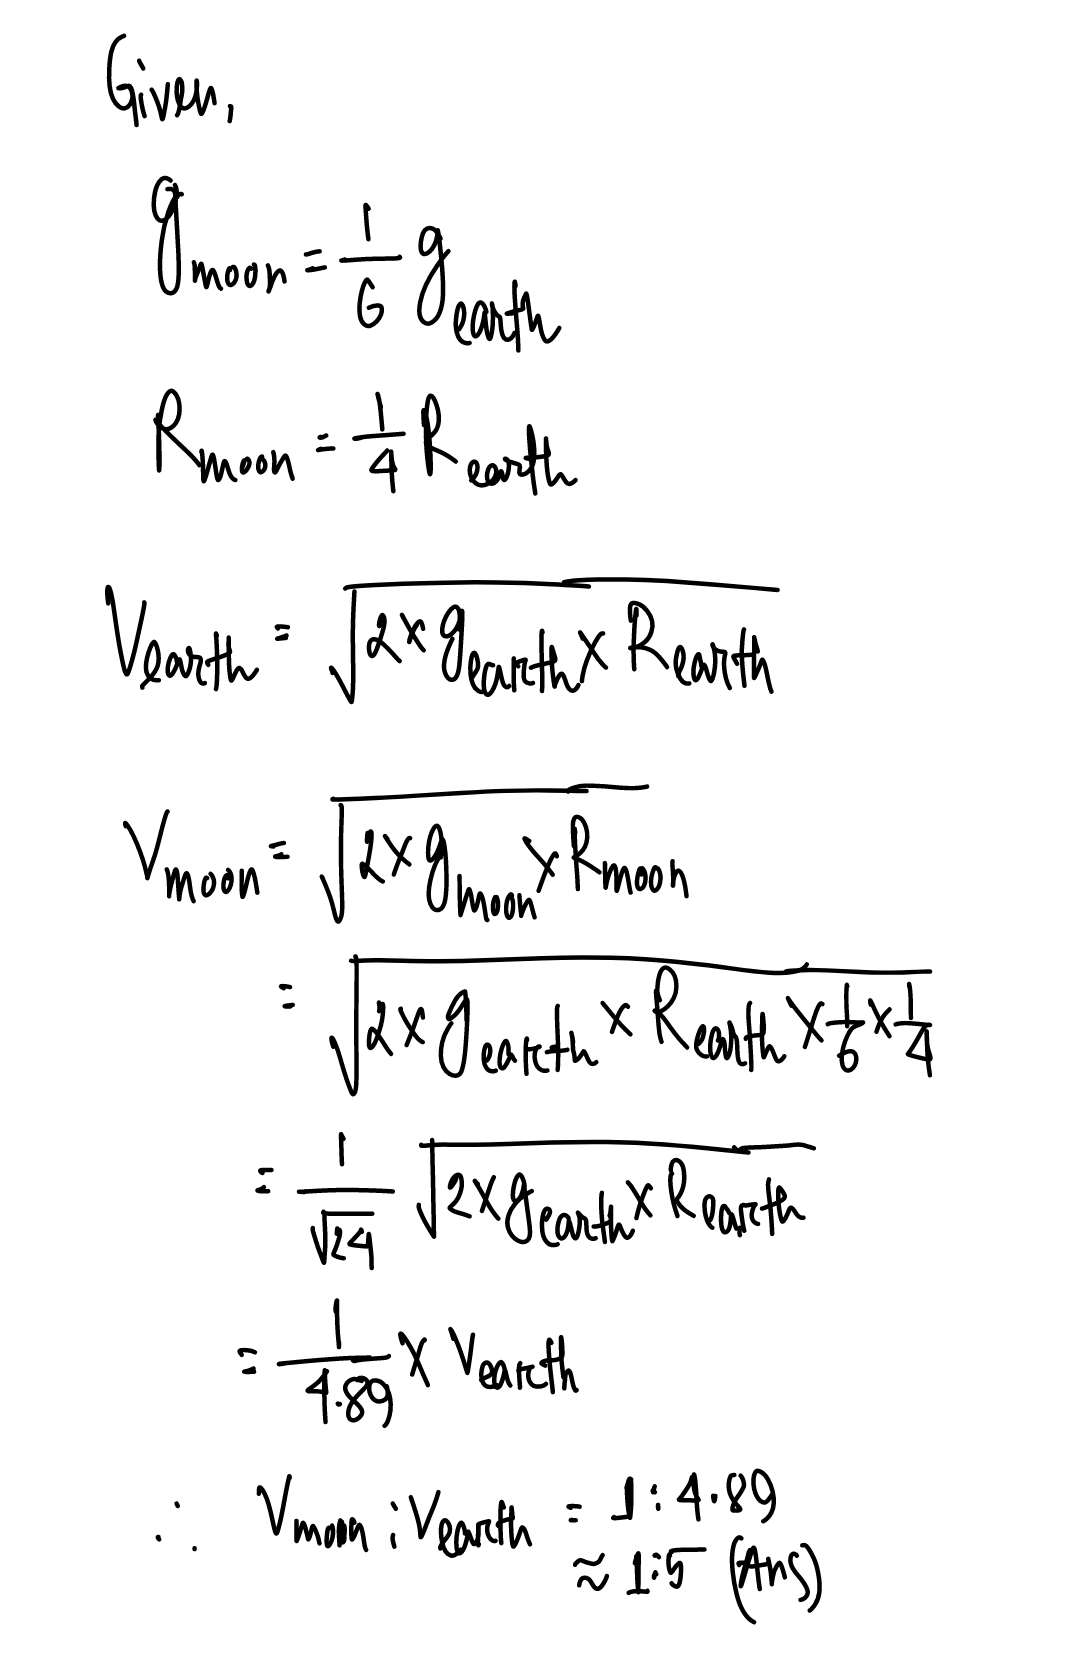 Given,
g_moon = 1/6 g_earth
R_moon = 1/4 R_earth
V_earth = √(2 × g_earth × R_earth)
V_moon = √(2 × g_moon × R_moon)
= √(2 × g_earth × R_earth × 1/6 × 1/4)
= 1/√24 √(2 × g_earth × R_earth)
= 1/4.89 × V_earth
∴ V_moon : V_earth = 1 : 4.89
≈ 1:5 (Ans)